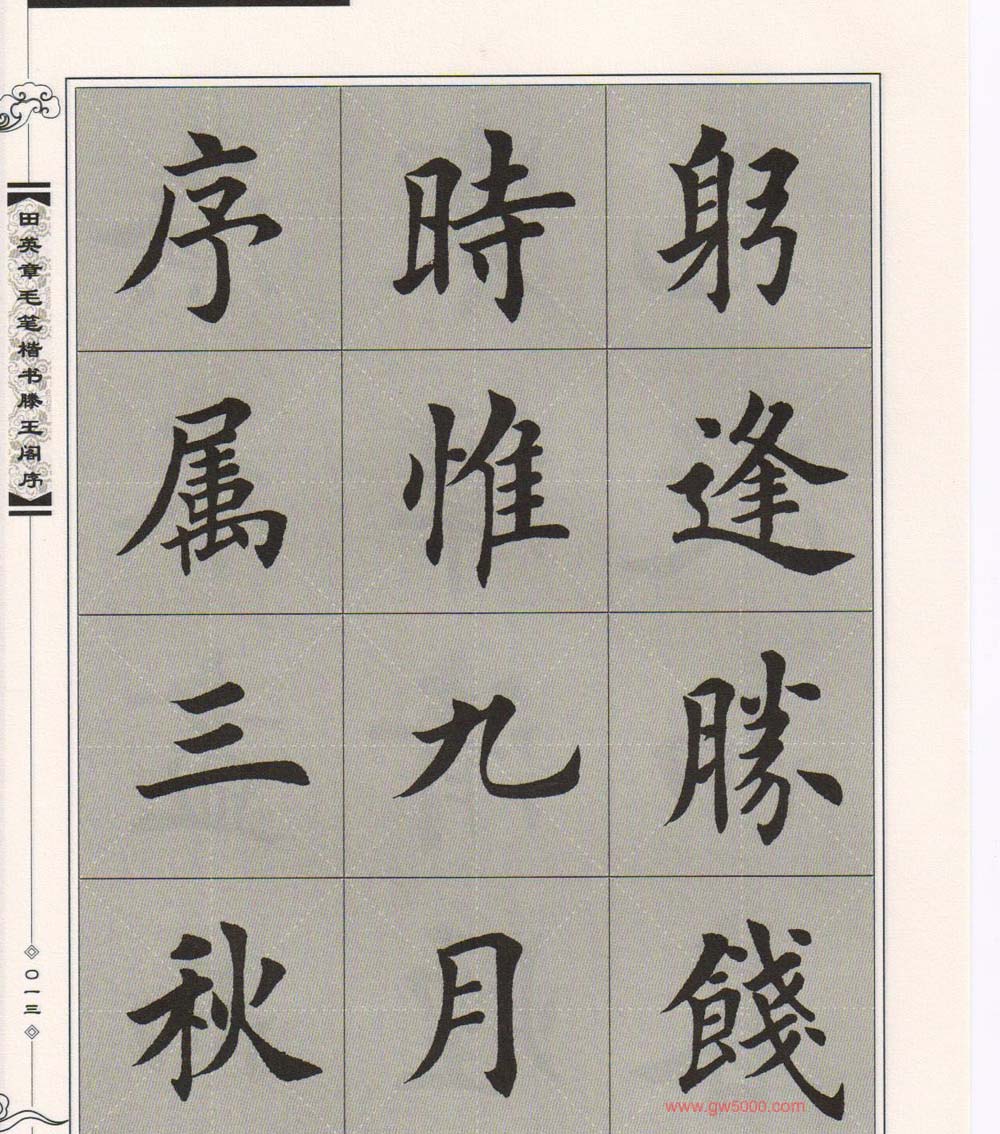 躬逢勝餞
時惟九月
序属三秋
田英章毛笔楷书滕王阁序
〇一三
www.gw5000.com